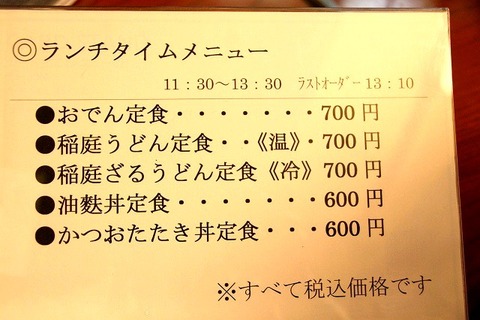 ◎ランチタイムメニュー
11：30～13：30　ﾗｽﾄｵｰﾀﾞｰ 13：10
●おでん定食・・・・・・・700 円
●稲庭うどん定食・・《温》・700 円
●稲庭ざるうどん定食《冷》700 円
●油麩丼定食・・・・・・・600 円
●かつおたたき丼定食・・・600 円
※すべて税込価格です